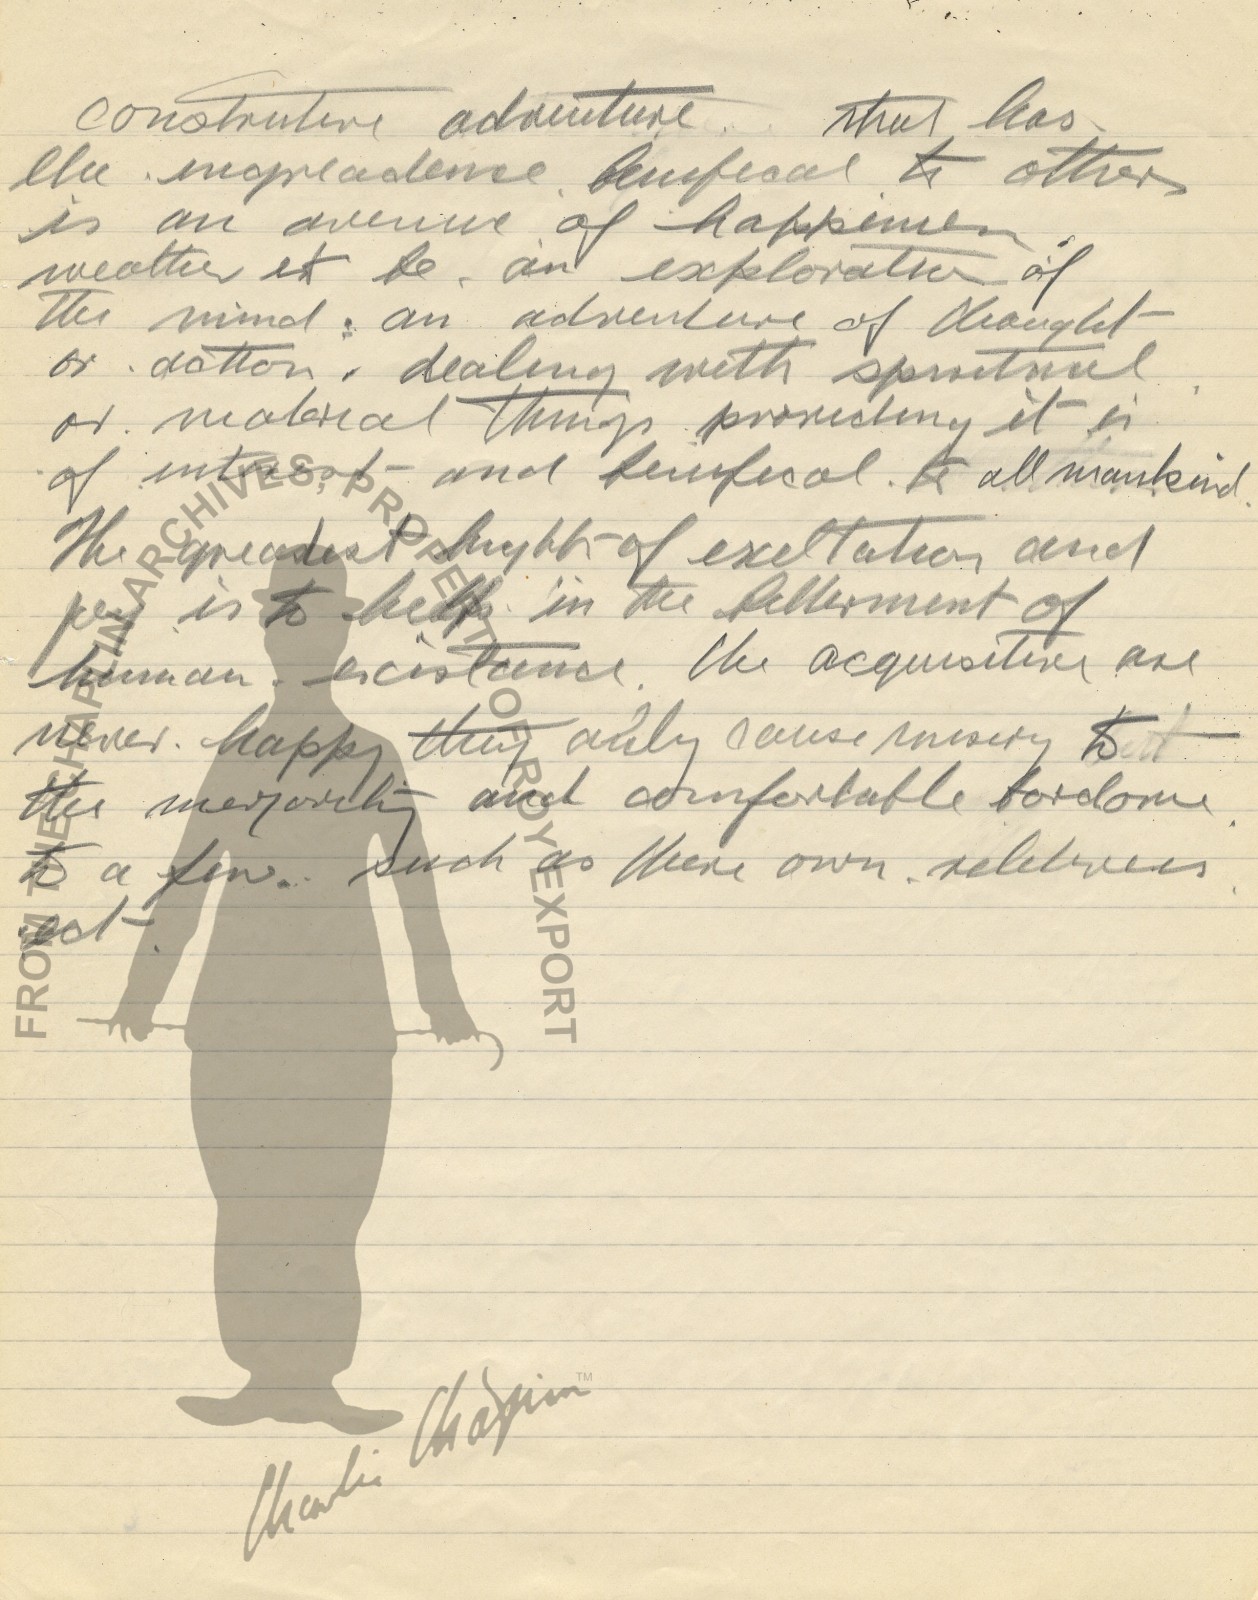 construtive adventure. that has
the ingreadence benifecal to others
is an avenue of happiness
weather it be an exploration of
the mind: an adventure of thought
or action, dealing with spiritual
or material things providing it is
of intrest and benifecal to all mankind.
The greatest hight of exeltation and
joy is to help in the betterment of
human existance. The acquisitive are
never happy they only cause misery to
the mejority and comfortable bordome
to a few. such as there own reletives
ect.
FROM THE CHAPLIN ARCHIVES, PROPERTY OF ROY EXPORT
Charlie Chaplin™